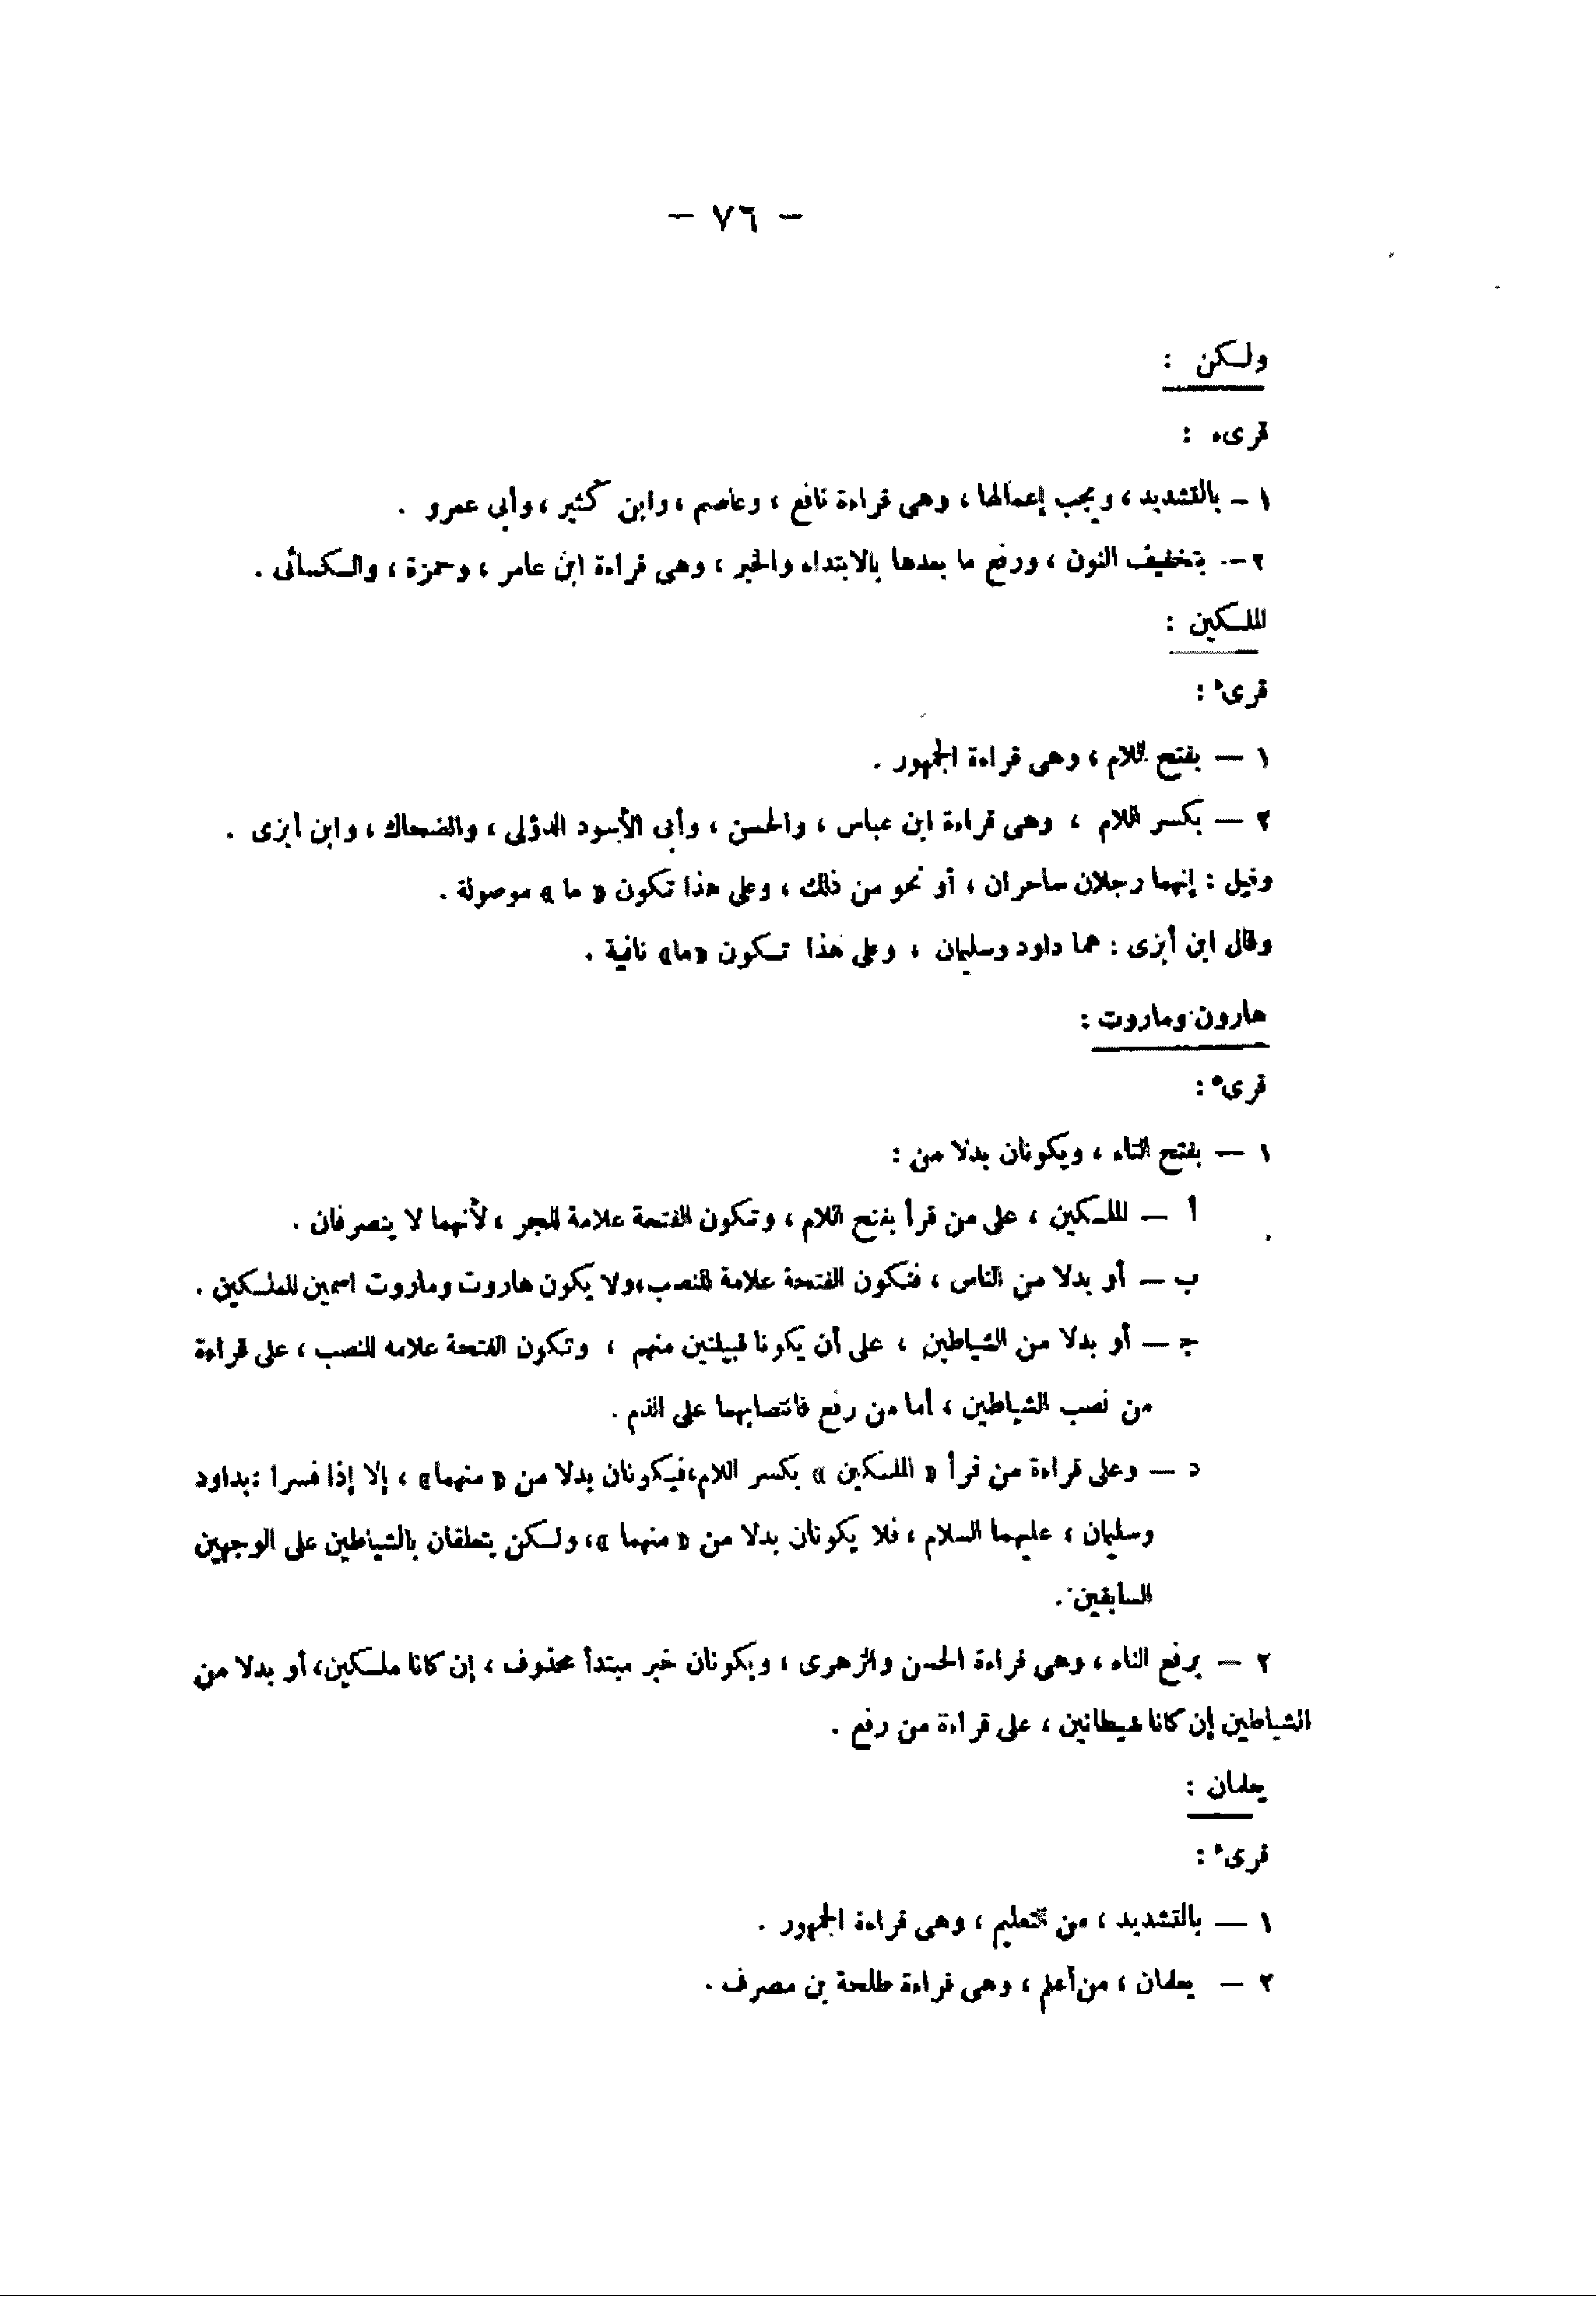 — ٧٦ —
ولكن :
قرىء :
١ – بالتشديد ، ويجب إعمالها ، وهى قراءة نافع ، وعاصم ، وابن كثير ، وأبى عمرو .
٢ – بتخفيف النون ، ورفع ما بعدها بالابتداء والخبر ، وهى قراءة ابن عامر ، وحمزة ، والكسائى .
الملكين :
قرىء :
١ — بفتح اللام ، وهى قراءة الجمهور .
٢ — بكسر اللام ، وهى قراءة ابن عباس ، والحسن ، وأبى الأسود الدؤلى ، والضحاك ، وابن أبزى .
وقيل : إنهما رجلان ساحران ، أو نحو من ذلك ، وعلى هذا تكون « ما » موصولة .
وقال ابن أبزى : هما داود وسليمان ، وعلى هذا تكون «ما» نافية .
هارون وماروت :
قرىء :
١ — بفتح التاء ، ويكونان بدلا من :
أ — الملكين ، على من قرأ بفتح اللام ، وتكون الفتحة علامة للجر ، لأنهما لا ينصرفان .
ب — أو بدلا من الناس ، فتكون الفتحة علامة للنصب ، ولا يكون هاروت وماروت اسمين للملكين .
ج — أو بدلا من الشياطين ، على أن يكونا قبيلتين منهم ، وتكون الفتحة علامه للنصب ، على قراءة
من نصب الشياطين ، أما من رفع فانتصابهما على الذم .
د — وعلى قراءة من قرأ « الملكين » بكسر اللام ، فيكونان بدلا من « منهما» ، إلا إذا فسرا : بداود
وسليمان ، عليهما السلام ، فلا يكونان بدلا من « منهما » ، ولكن يتعلقان بالشياطين على الوجهين
السابقين .
٢ — برفع التاء ، وهى قراءة الحسن والزهرى ، ويكونان خبر مبتدأ محذوف ، إن كانا ملكين ، أو بدلا من
الشياطين إن كانا شيطانين ، على قراءة من رفع .
يعلمان :
قرىء :
١ — بالتشديد ، من التعليم ، وهى قراءة الجمهور .
٢ — يعلمان ، من أعلم ، وهى قراءة طلحة بن مصرف .